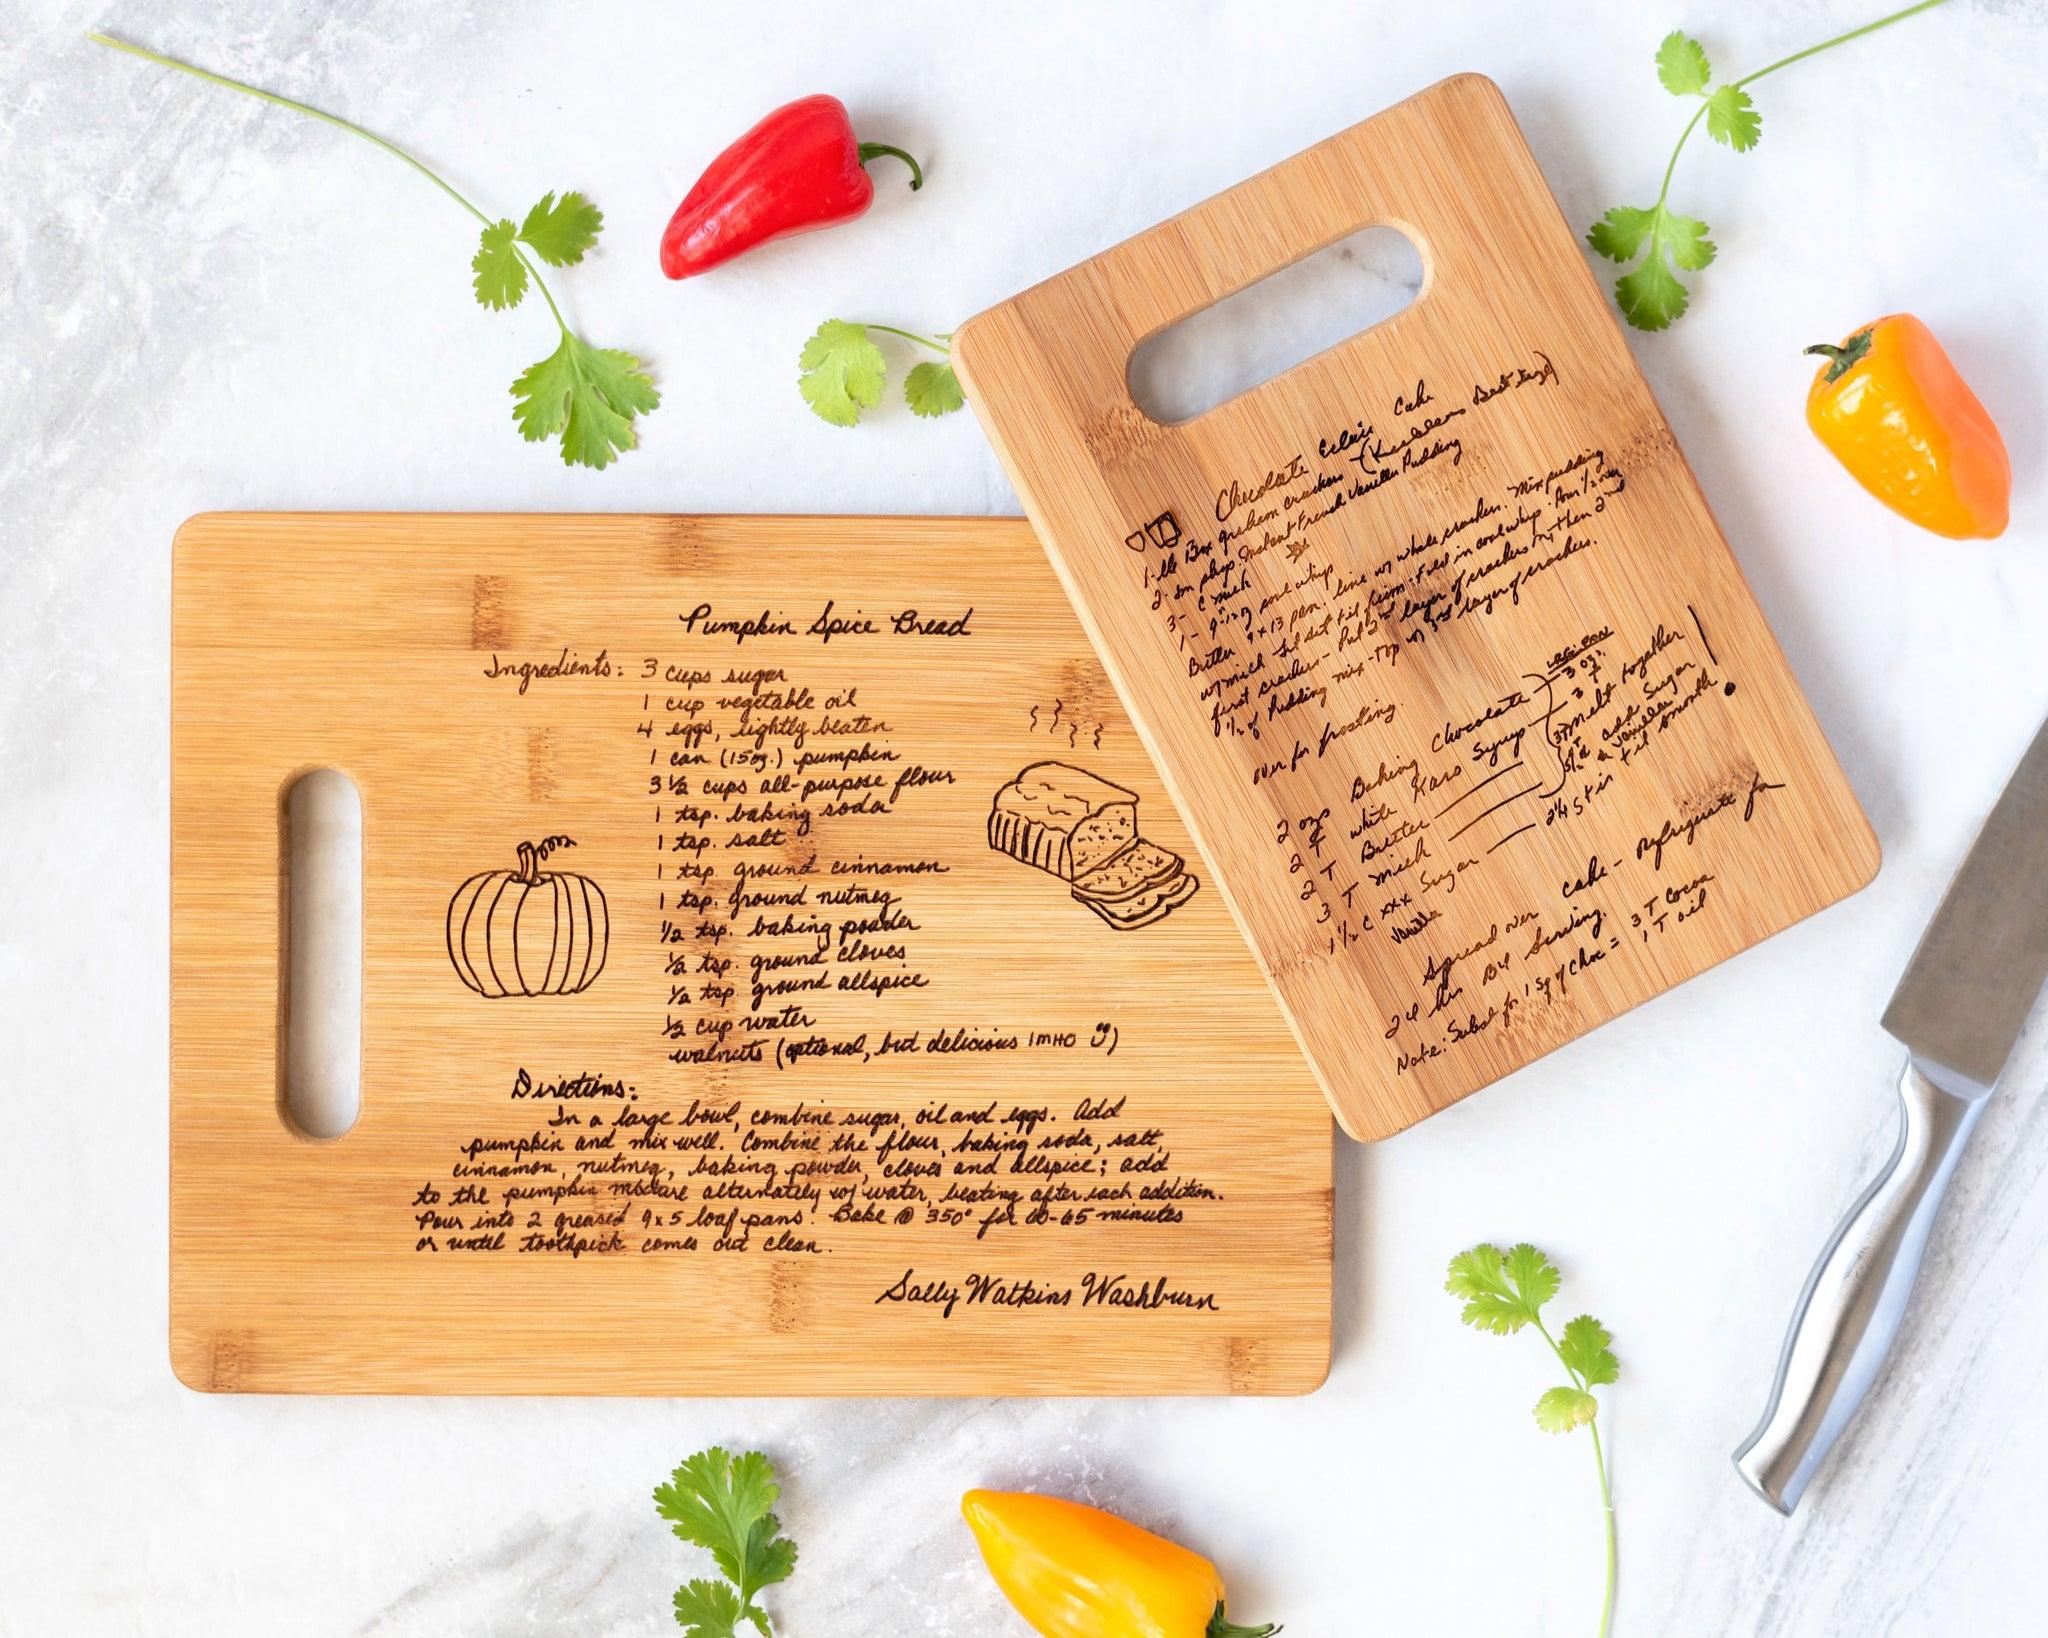 Pumpkin Spice Bread
Ingredients: 3 cups sugar
1 cup vegetable oil
4 eggs, lightly beaten
1 can (15oz.) pumpkin
3 1/2 cups all-purpose flour
1 tsp. baking soda
1 tsp. salt
1 tsp. ground cinnamon
1 tsp. ground nutmeg
1/2 tsp. baking powder
1/2 tsp. ground cloves
1/2 tsp. ground allspice
1/2 cup water
walnuts (optional, but delicious IMHO)
Directions:
In a large bowl, combine sugar, oil and eggs. Add
pumpkin and mix well. Combine the flour, baking soda, salt,
cinnamon, nutmeg, baking powder, cloves and allspice; add
to the pumpkin mixture alternately w/ water, beating after each addition.
Pour into 2 greased 9x5 loaf pans. Bake @ 350° for 60-65 minutes
or until toothpick comes out clean.
Sally Watkins Washburn
Chocolate Eclair Cake
1-lb Box graham crackers (Keeblers Best
2-sm pkgs. Instant French Vanilla Pudding
3- C milk
1- 9 -12oz cool whip
Butter 9x13 pan. line w/ whole crackers. Mix pudding
w/ milk let set til firm - fold in cool whip. Pour 1/2 over
first crackers - Put 2nd layer of crackers then 2nd
1/2 of Pudding mix - top w/ 3rd layer of crackers.
over for frosting.
LRGE PAN
2 ozs Baking Chocolate 3 ozs.
2 T white Karo Syrup 3 T
2 T Butter 3T melt together
3 T milk add Sugar
1 1/2 C xxx Sugar 2 1/4 Stir til smooth!
Vanilla
Spread over cake - refrigerate for
24 hrs B4 Serving.
Note: Subst for 1 Sq of Choc = 3 T cocoa
1 T oil